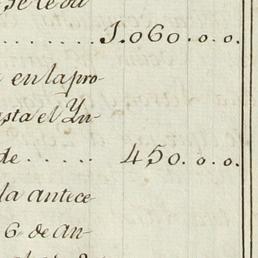 se le da
1.060. o. o.
en la pro-
asta el Yn-
de . . . . . 450. o. o.
la antece
6 de An-